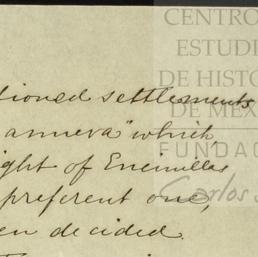 CENTRO
ESTUDI
DE HISTO
DE MÉX
FUNDAC
Carlos S
tioned settlements
anneva" which,
ight of Encinillas
preferent one,
en decided